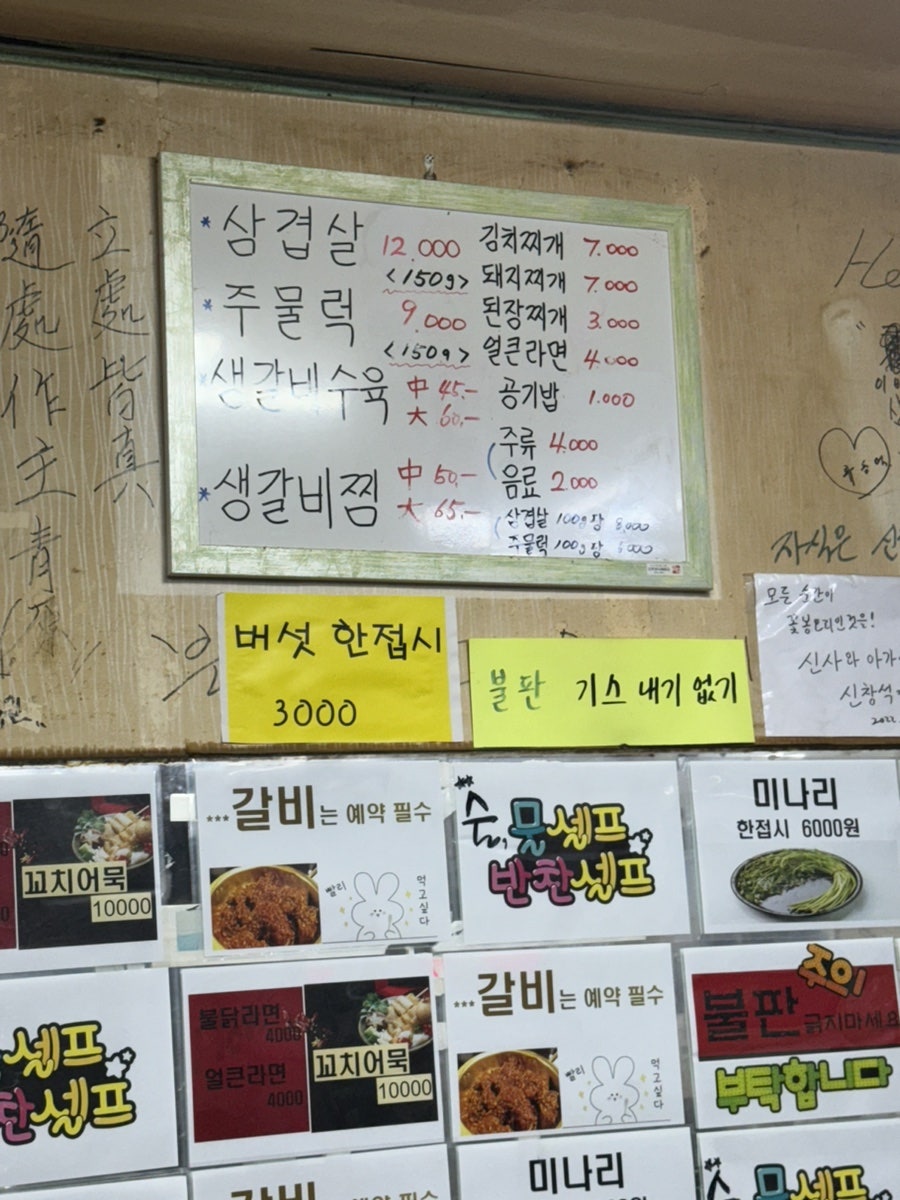 立處皆真
隨處作主
* 삼겹살 12.000
<150g>
* 주물럭 9.000
<150g>
* 생갈비수육 中 45.-
大 60.-
* 생갈비찜 中 50.-
大 65.-
김치찌개 7.000
돼지찌개 7.000
된장찌개 3.000
얼큰라면 4.000
공기밥 1.000
주류 4.000
음료 2.000
삼겹살 100g당 8,000
주물럭 100g당 6000
자식은
버섯 한접시
3000
불판 기스 내기 없기
모든 순간이
꽃봉오리인것을!
신사와 아가
신창석
꼬치어묵
10000
...갈비는 예약 필수
빨리
먹고싶다
술, 물셀프
반찬셀프
미나리
한접시 6000원
셀프
찬셀프
불닭라면
4000
얼큰라면
4000
꼬치어묵
10000
...갈비는 예약 필수
빨리
먹고싶다
주의
불판 긁지마세요
부탁합니다
갈비는 예약 필수
미나리
물셀프